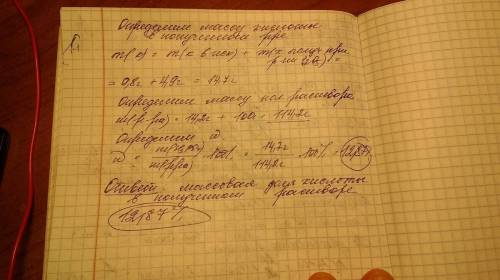 Определим массу кислоты
в полученном р-ре
m( ) = m(к в исх) + m(к получ при
= 9,8г + 4,9г = 14,7г
Определим массу пол раствора
m(р-ра) = 14,2г + 100г = 114,2г
Определим ω
ω = · 100% = 14,7г / 114,2г · 100% = 12,87%
Ответ: массовая доля кислоты
в полученном растворе
12,87%